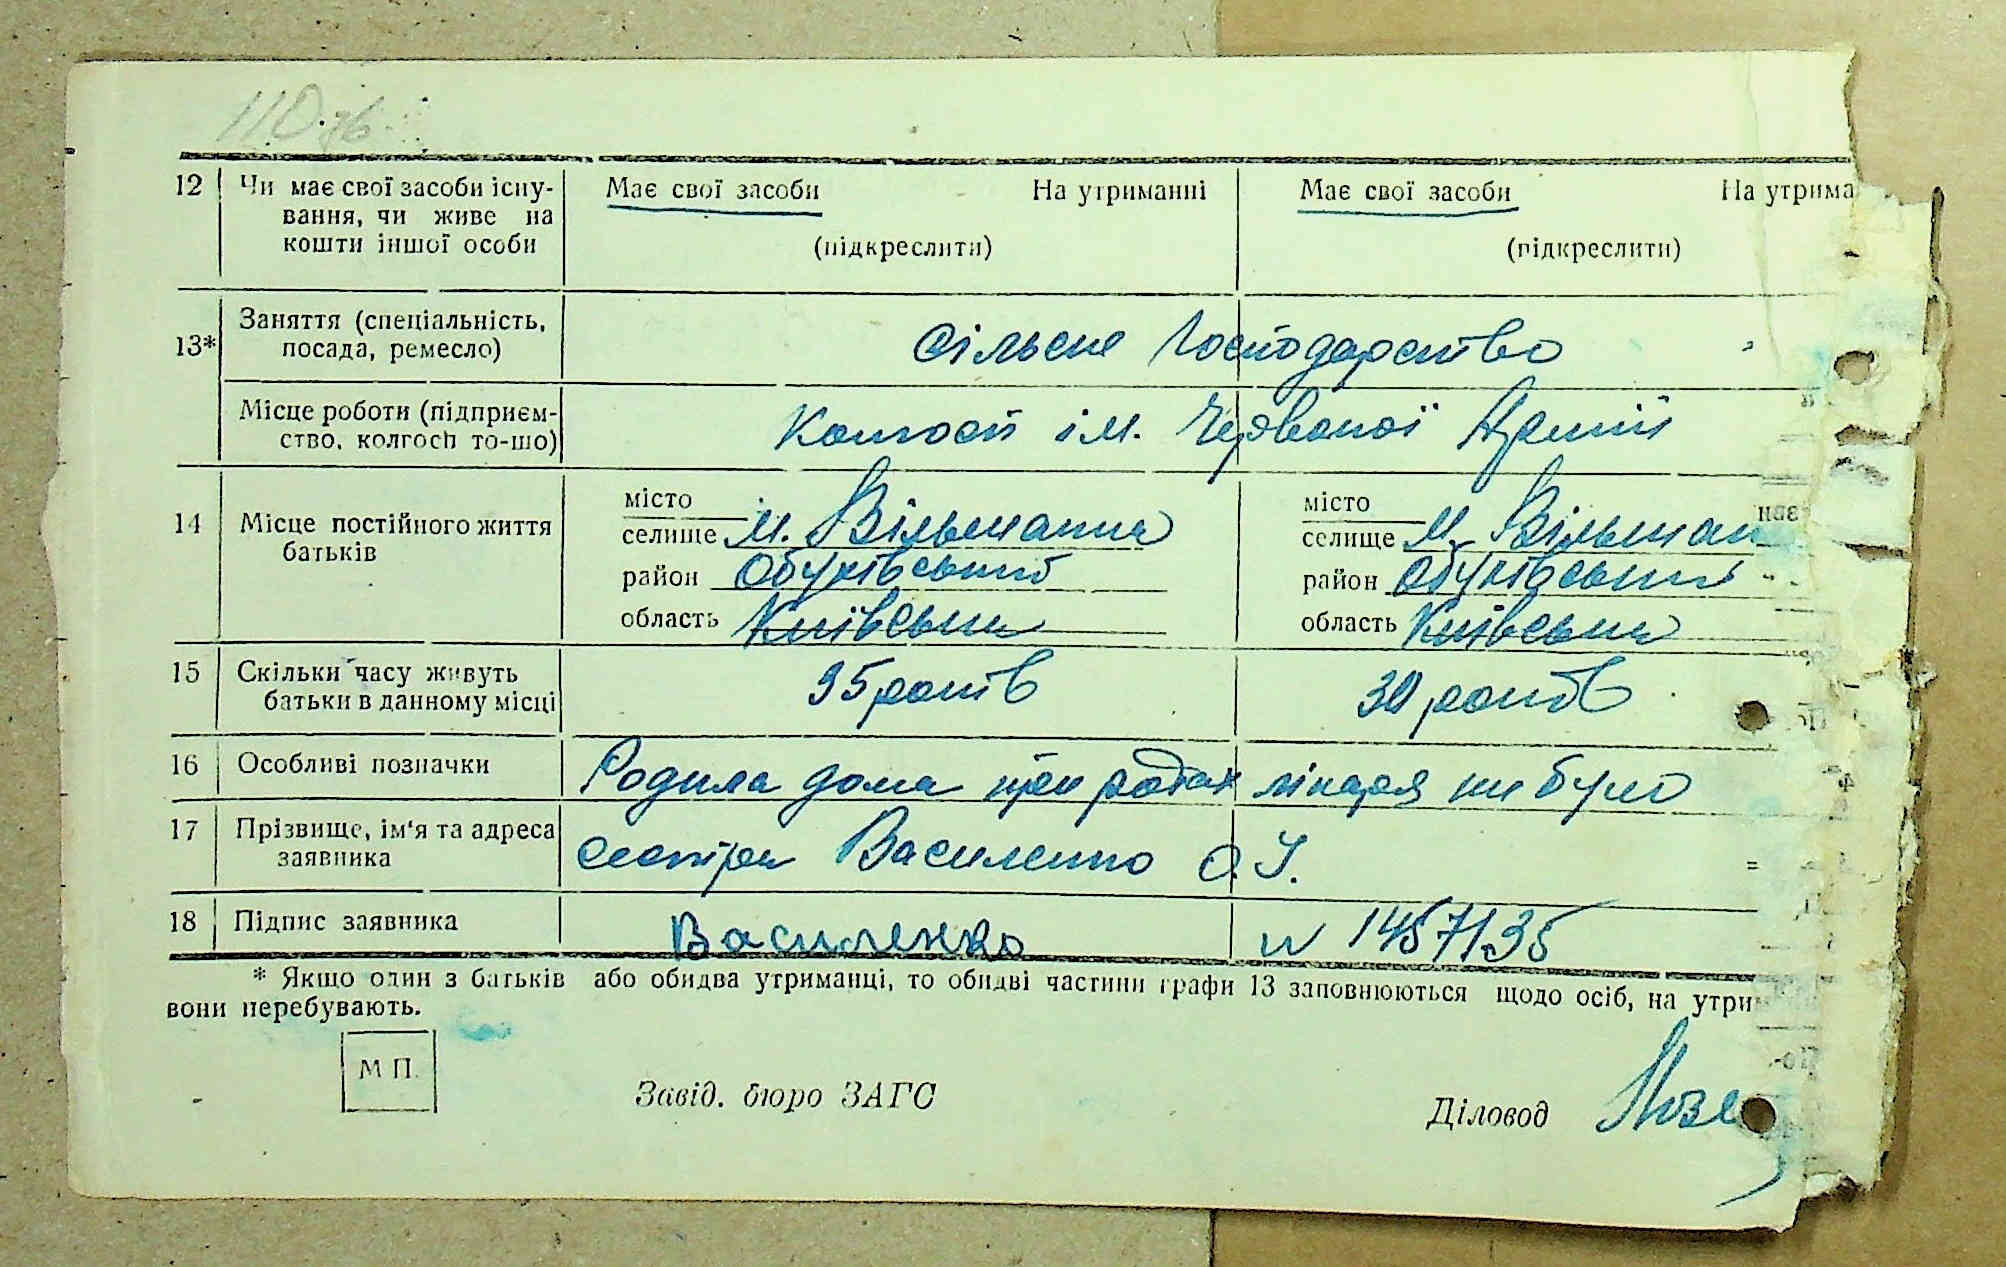 110 зв
12 Чи має свої засоби існу- Має свої засоби На утриманні Має свої засоби На утрима
вання, чи живе на
кошти іншої особи (підкреслити) (підкреслити)
13* Заняття (спеціальність, посада, ремесло) сільське господарство
Місце роботи (підприєм-
ство, колгосп то-що) Колгосп ім. Червоної Армії
14 Місце постійного життя батьків
місто місто
селище м. Вільшанка селище м. Вільшан
район Обухівський район Обухівський
область Київська область Київська
15 Скільки часу живуть
батьки в данному місці 35 років 30 років
16 Особливі позначки Родила дома при родах лікаря не було
17 Прізвище, ім'я та адреса
заявника сестра Василенко О.І.
18 Підпис заявника Василенко № 1457135
* Якщо один з батьків або обидва утриманці, то обидві частини графи 13 заповнюються щодо осіб, на утри
вони перебувають.
М П.
Завід. бюро ЗАГС
Діловод